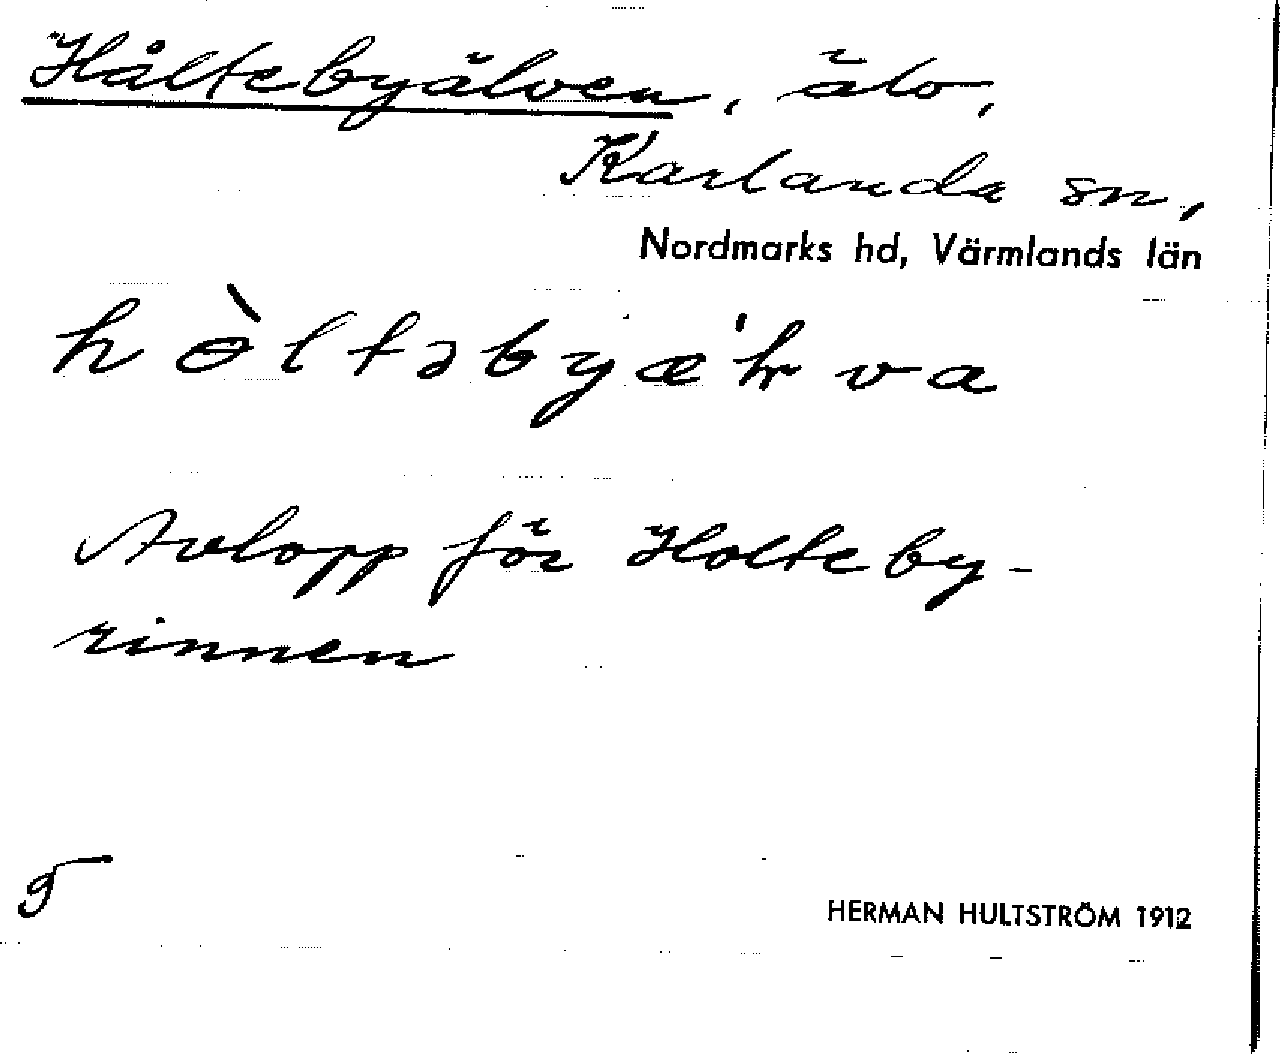 Håltebyälven, älv,
Karlanda sn,
Nordmarks hd, Värmlands län
hɵ̀ltəbyæ'lva
Avlopp för Holteby-
rinnen
HERMAN HULTSTRÖM 1912